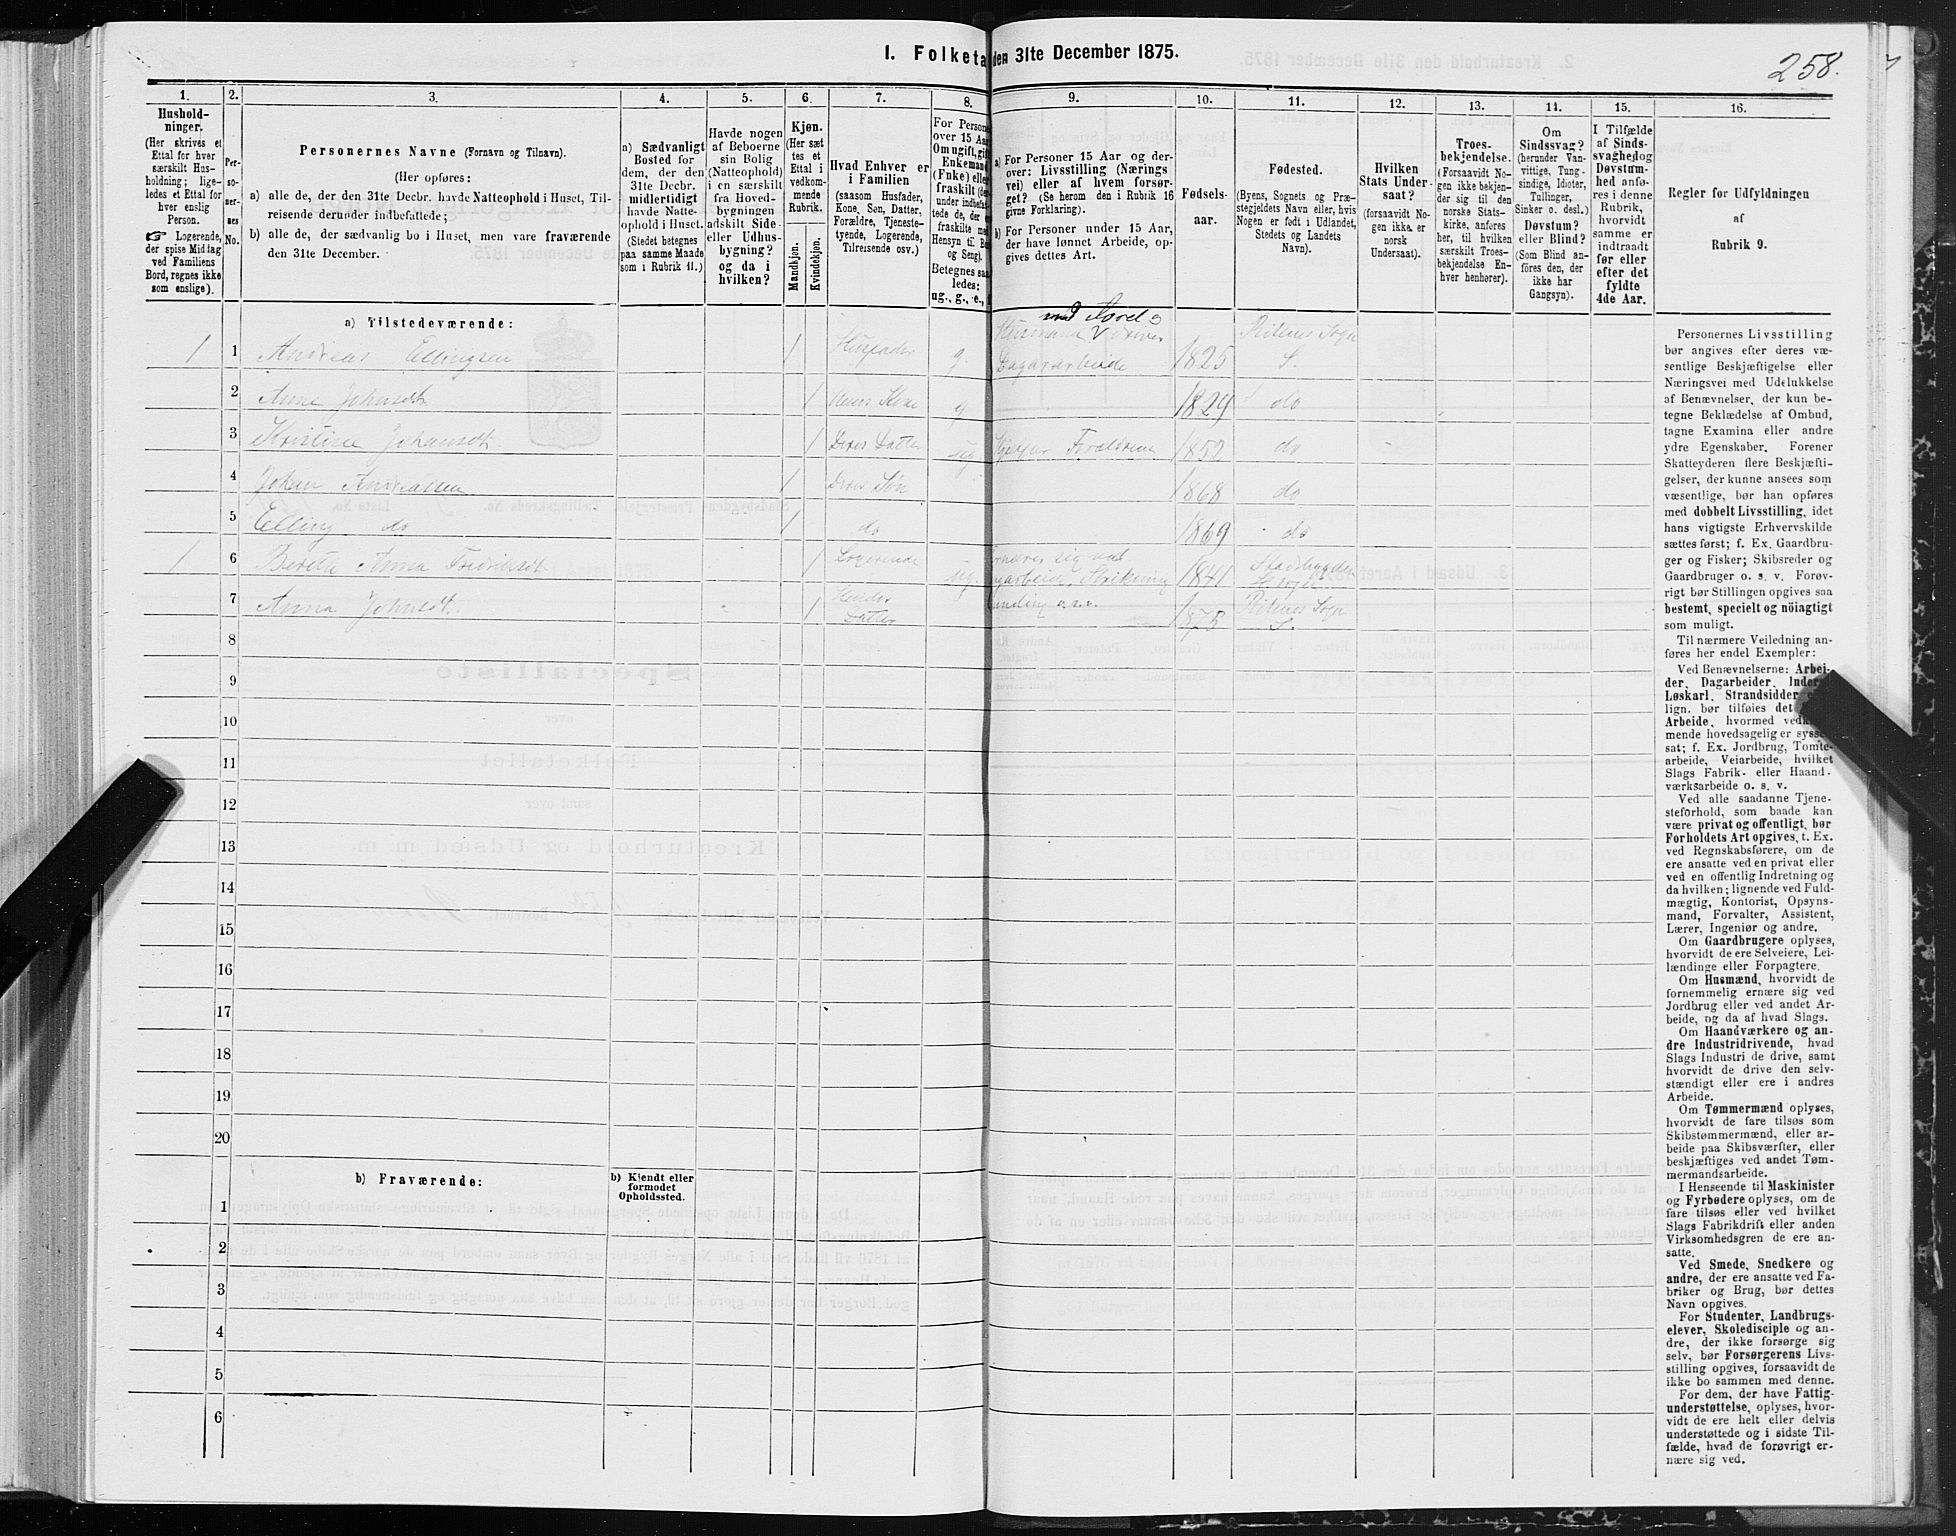 I. Folketa den 31te December 1875.
258.
1.
Hushold-
ninger.
(Her skrives et
Ettal for hver
særskilt Hus-
holdning; lige-
ledes et Ettal for
hver enslig
Person.
☞ Logerende,
der spise Middag
ved Familiens
Bord, regnes ikke
som enslige).
2.
Per-
so-
ner-
nes
No.
3.
Personernes Navne (Fornavn og Tilnavn).
(Her opføres:
a) alle de, der den 31te Decbr. havde Natteophold i Huset, Til-
reisende derunder indbefattede;
b) alle de, der sædvanlig bo i Huset, men vare fraværende
den 31te December.
4.
a) Sædvanligt
Bosted for
dem, der den
31te Decbr.
midlertidigt
havde Natte-
ophold i Huset.
(Stedet betegnes
paa samme Maade
som i Rubrik 11.)
5.
Havde nogen
af Beboerne
sin Bolig
(Natteophold)
i en særskilt
fra Hoved-
bygningen
adskilt Side-
eller Udhus-
bygning?
og da i
hvilken?
6.
Kjøn.
(Her sæt
tes et
Ettal i
vedkom-
mende
Rubrik.
Mandkjøn.
Kvindekjøn.
7.
Hvad Enhver er
i Familien
(saasom Husfader,
Kone, Søn, Datter,
Forældre, Tjeneste-
tyende, Logerende,
Tilreisende osv.)
8.
For Persone
over 15 Aa
Om ugift, gift
Enkemand
(Enke) eller
fraskilt
Betegnes saa
ledes:
ug., g., e.,
9.
a) For Personer 15 Aar og der-
over: Livsstilling (Nærings
vei) eller af hvem forsør-
get? (Se herom den i Rubrik 16
givne Forklaring).
b) For Personer under 15 Aar,
der have lønnet Arbeide, op-
gives dettes Art.
10.
Fødsels-
aar.
11.
Fødested.
(Byens, Sognets og Præ-
stegjeldets Navn eller, hvis
Nogen er født i Udlandet,
Stedets og Landets
Navn).
12.
Hvilken
Stats Under-
saat?
(forsaavidt No-
gen ikke er
norsk
Undersaat).
13.
Troes-
bekjendelse.
(Forsaavidt No-
gen ikke bekjen-
der sig til den
norske Stats-
kirke, anføres
her, til hvilken
særskilt Troes-
bekjendelse En-
hver henhører).
14.
Om
Sindssvag?
(herunder Van-
vittige, Tung-
sindige, Idioter,
Tullinger,
Sinker o. desl.)
Døvstum?
eller Blind?
(Som Blind an-
føres den, der
ikke har
Gangsyn).
15.
I Tilfælde
af Sinds-
svaghed og
Døvstum-
hed anfø-
res i denne
Rubrik,
hvorvidt
samme er
indtraadt
før eller
efter det
fyldte
4de Aar.
16.
Regler for Udfyldningen
af
Rubrik 9.
a) Tilstedeværende:
med Jord
1 1 Andreas Ellingsen 1 Husfader g Husmand Dagarbeide 1825 Ritens Sogn S.
2 Anne Johnsdt. 1 Hans Kone g 1829 do
3 Kristine Johansdt. 1 Deres Datter ug Hjelper Forældrene 1852 do
4 Johan Andreassen 1 Deres Søn 1868 do
5 Elling do 1 do 1869 do
1 6 Berete Anna Fredriksdt 1 Logerende ug. sig ved Strikning 1841 Stadsbygden
7 Anna Johnsdt. 1 Hendes Datter 1875 Ritens Sogn S.
8
9
10
11
12
13
14
15
16
17
18
19
20
b) Fraværende:
b) Kjendt eller
formodet
Opholdssted.
1
2
3
4
5
6
Personernes Livsstilling
bør angives efter deres væ-
sentlige Beskjæftigelse eller
Næringsvei med Udelukkelse
af Benævnelser, der kun be-
tegne Beklædelse af Ombud,
tagne Examina eller andre
ydre Egenskaber. Forener
Skatteyderen flere Beskjæfti-
gelser, der kunne ansees som
væsentlige, bør han opføres
med dobbelt Livsstilling, idet
hans vigtigste Erhvervskilde
sættes først; f. Ex. Gaardbru-
ger og Fisker; Skibsreder og
Gaardbruger o. s. v. Forøv-
rigt bør Stillingen opgives saa
bestemt, specielt og nöiagtigt
som muligt.
Til nærmere Veiledning an-
føres her endel Exempler:
Ved Benævnelserne: Arbei-
der, Dagarbeider, Inder
Løskarl, Strandsidder
lign. bør tilføies det
Arbeide, hvormed ved
mende hovedsagelig er sysse
sat; f. Ex. Jordbrug, Tomte-
arbeide, Veiarbeide, hvilket
Slags Fabrik- eller Haand-
værksarbeide o. s. v.
Ved alle saadanne Tjene-
steforhold, som baade kan
være privat og offentligt, bør
Forholdets Art opgives, t. Ex.
ved Regnskabsførere, om de
ere ansatte ved en privat eller
ved en offentlig Indretning og
da hvilken; lignende ved Fuld-
mægtig, Kontorist, Opsyns-
mand, Forvalter, Assistent,
Lærer, Ingeniør og andre.
Om Gaardbrugere oplyses,
hvorvidt de ere Selveiere, Lei-
lændinge eller Forpagtere.
Om Husmænd, hvorvidt de
fornemmelig ernære sig ved
Jordbrug eller ved andet Ar-
beide, og da af hvad Slags.
Om Haandværkere og an-
dre Industridrivende, hvad
Slags Industri de drive, samt
hvorvidt de drive den selv-
stændigt eller ere i andres
Arbeide.
Om Tømmermænd oplyses,
hvorvidt de fare tilsøs som
Skibstømmermænd, eller ar-
beide paa Skibsværfter, eller
beskjæftiges ved andet Tøm-
mermandsarbeide.
I Henseende til Maskinister
og Fyrbødere oplyses, om de
fare tilsøs eller ved hvilket
Slags Fabrikdrift eller anden
Virksomhedsgren de ere an-
satte.
Ved Smede, Snedkere og
andre, der ere ansatte ved Fa-
briker og Brug, bør dettes
Navn opgives.
For Studenter, Landbrugs-
elever, Skoledisciple og an-
dre, der ikke forsørge sig
selv, bør Forsørgerens Livs-
stilling opgives, forsaavidt de
ikke bo sammen med denne.
For dem, der have Fattig-
understøttelse, oplyses, hvor-
vidt de ere helt eller delvis
understøttede og i sidste Til-
fælde, hvad de forøvrigt er-
nære sig ved.